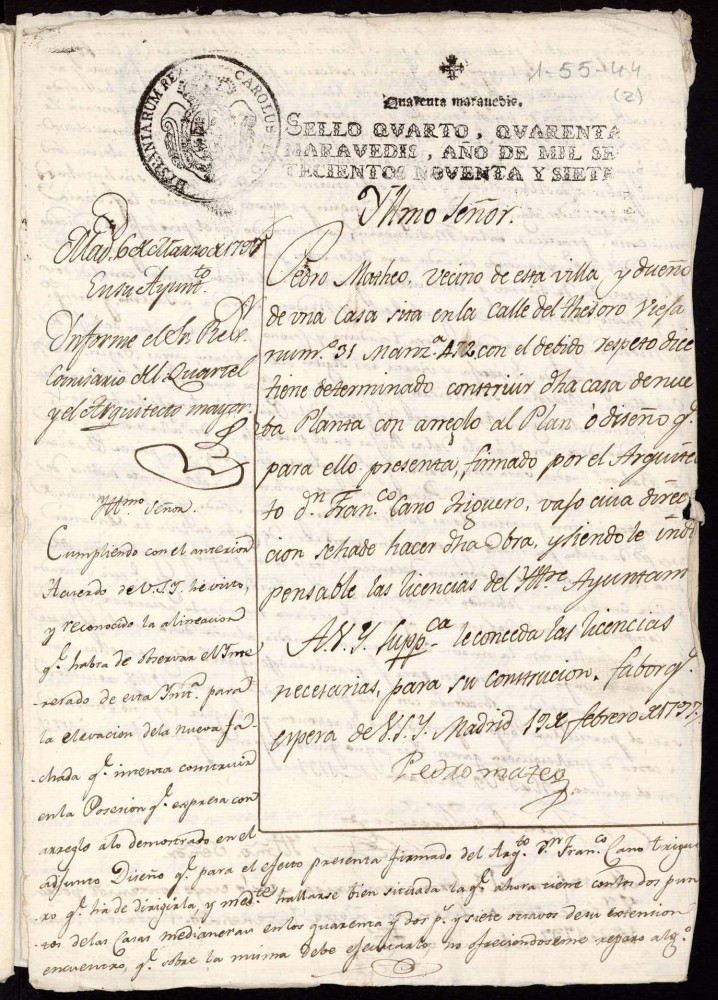 HISPANIARUM REX
CAROLUS
1-55-44
(2)
Quarenta marauedis.
SELLO QVARTO, QVARENTA
MARAVEDIS, AÑO DE MIL SE
TECIENTOS NOVENTA Y SIETE
Yllmo Señor.
Pedro Matheo, vecino de esta villa y dueño
de vna Casa sita en la Calle del thesoro Viejo
num.º 31 Manz.ª 472 con el debido respeto dice
tiene determinado construir dha casa de nue
ba Planta con arreglo al Plan o diseño q.ᵉ
para ello presenta, firmado por el Arquite
to d.ⁿ Fran.ᶜᵒ Cano triguero, vajo cuia direc
cion se ha de hacer dha Obra, y siendo le indi
pensable las licencias del Yttre Ayuntam
A V.Y. supp.ᶜᵃ le conceda las licencias
necesarias, para su construcion. fabor q.ᵉ
espera de V.S.Y. Madrid 19 de febrero de 1797.
Pedro mateo
Mad. 6 de Marzo de 1797
En su Ayunt.ᵗᵒ
Informe el Sr. Rexr.
Comisario del Quartel
y el Arquitecto mayor.
Yttmo Señor.
Cumpliendo con el anterior
Acuerdo de V.S.Y. he visto,
y reconocido la alineacion
q.ᵉ habra de observar el Ynte
resado de esta Ynst.ª para
la elevacion de la nueva fa-
chada q.ᵉ intenta construir
en la Posesion q.ᵉ expresa con
arreglo a lo demostrado en el
adjunto Diseño q.ᵉ para el efecto presenta firmado del Arq.ᵗᵒ D.ⁿ Fran.ᶜᵒ Cano trigue
ro q.ᵉ ha de dirigirla, y med.ᵗᵉ hallarse bien situada la q.ᵉ ahora tiene con los dos pun
tos de las Casas medianeras en los quarenta y dos p.ˢ y siete octavos de su extension
encuentro, q.ᵉ sobre la misma debe ejecutarlo, no ofreciendoseme reparo alg.º